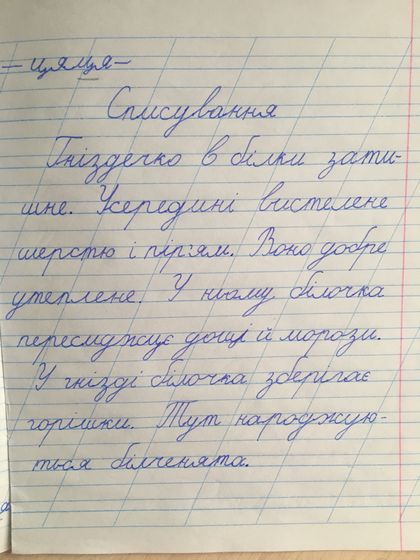 — цямця —
Списування
Гніздечко в білки зати-
шне. Усередині вистелене
шерстю і пір'ям. Воно добре
утеплене. У ньому білочка
пересиджує дощі й морози.
У гнізді білочка зберігає
горішки. Тут народжую-
ться білченята.